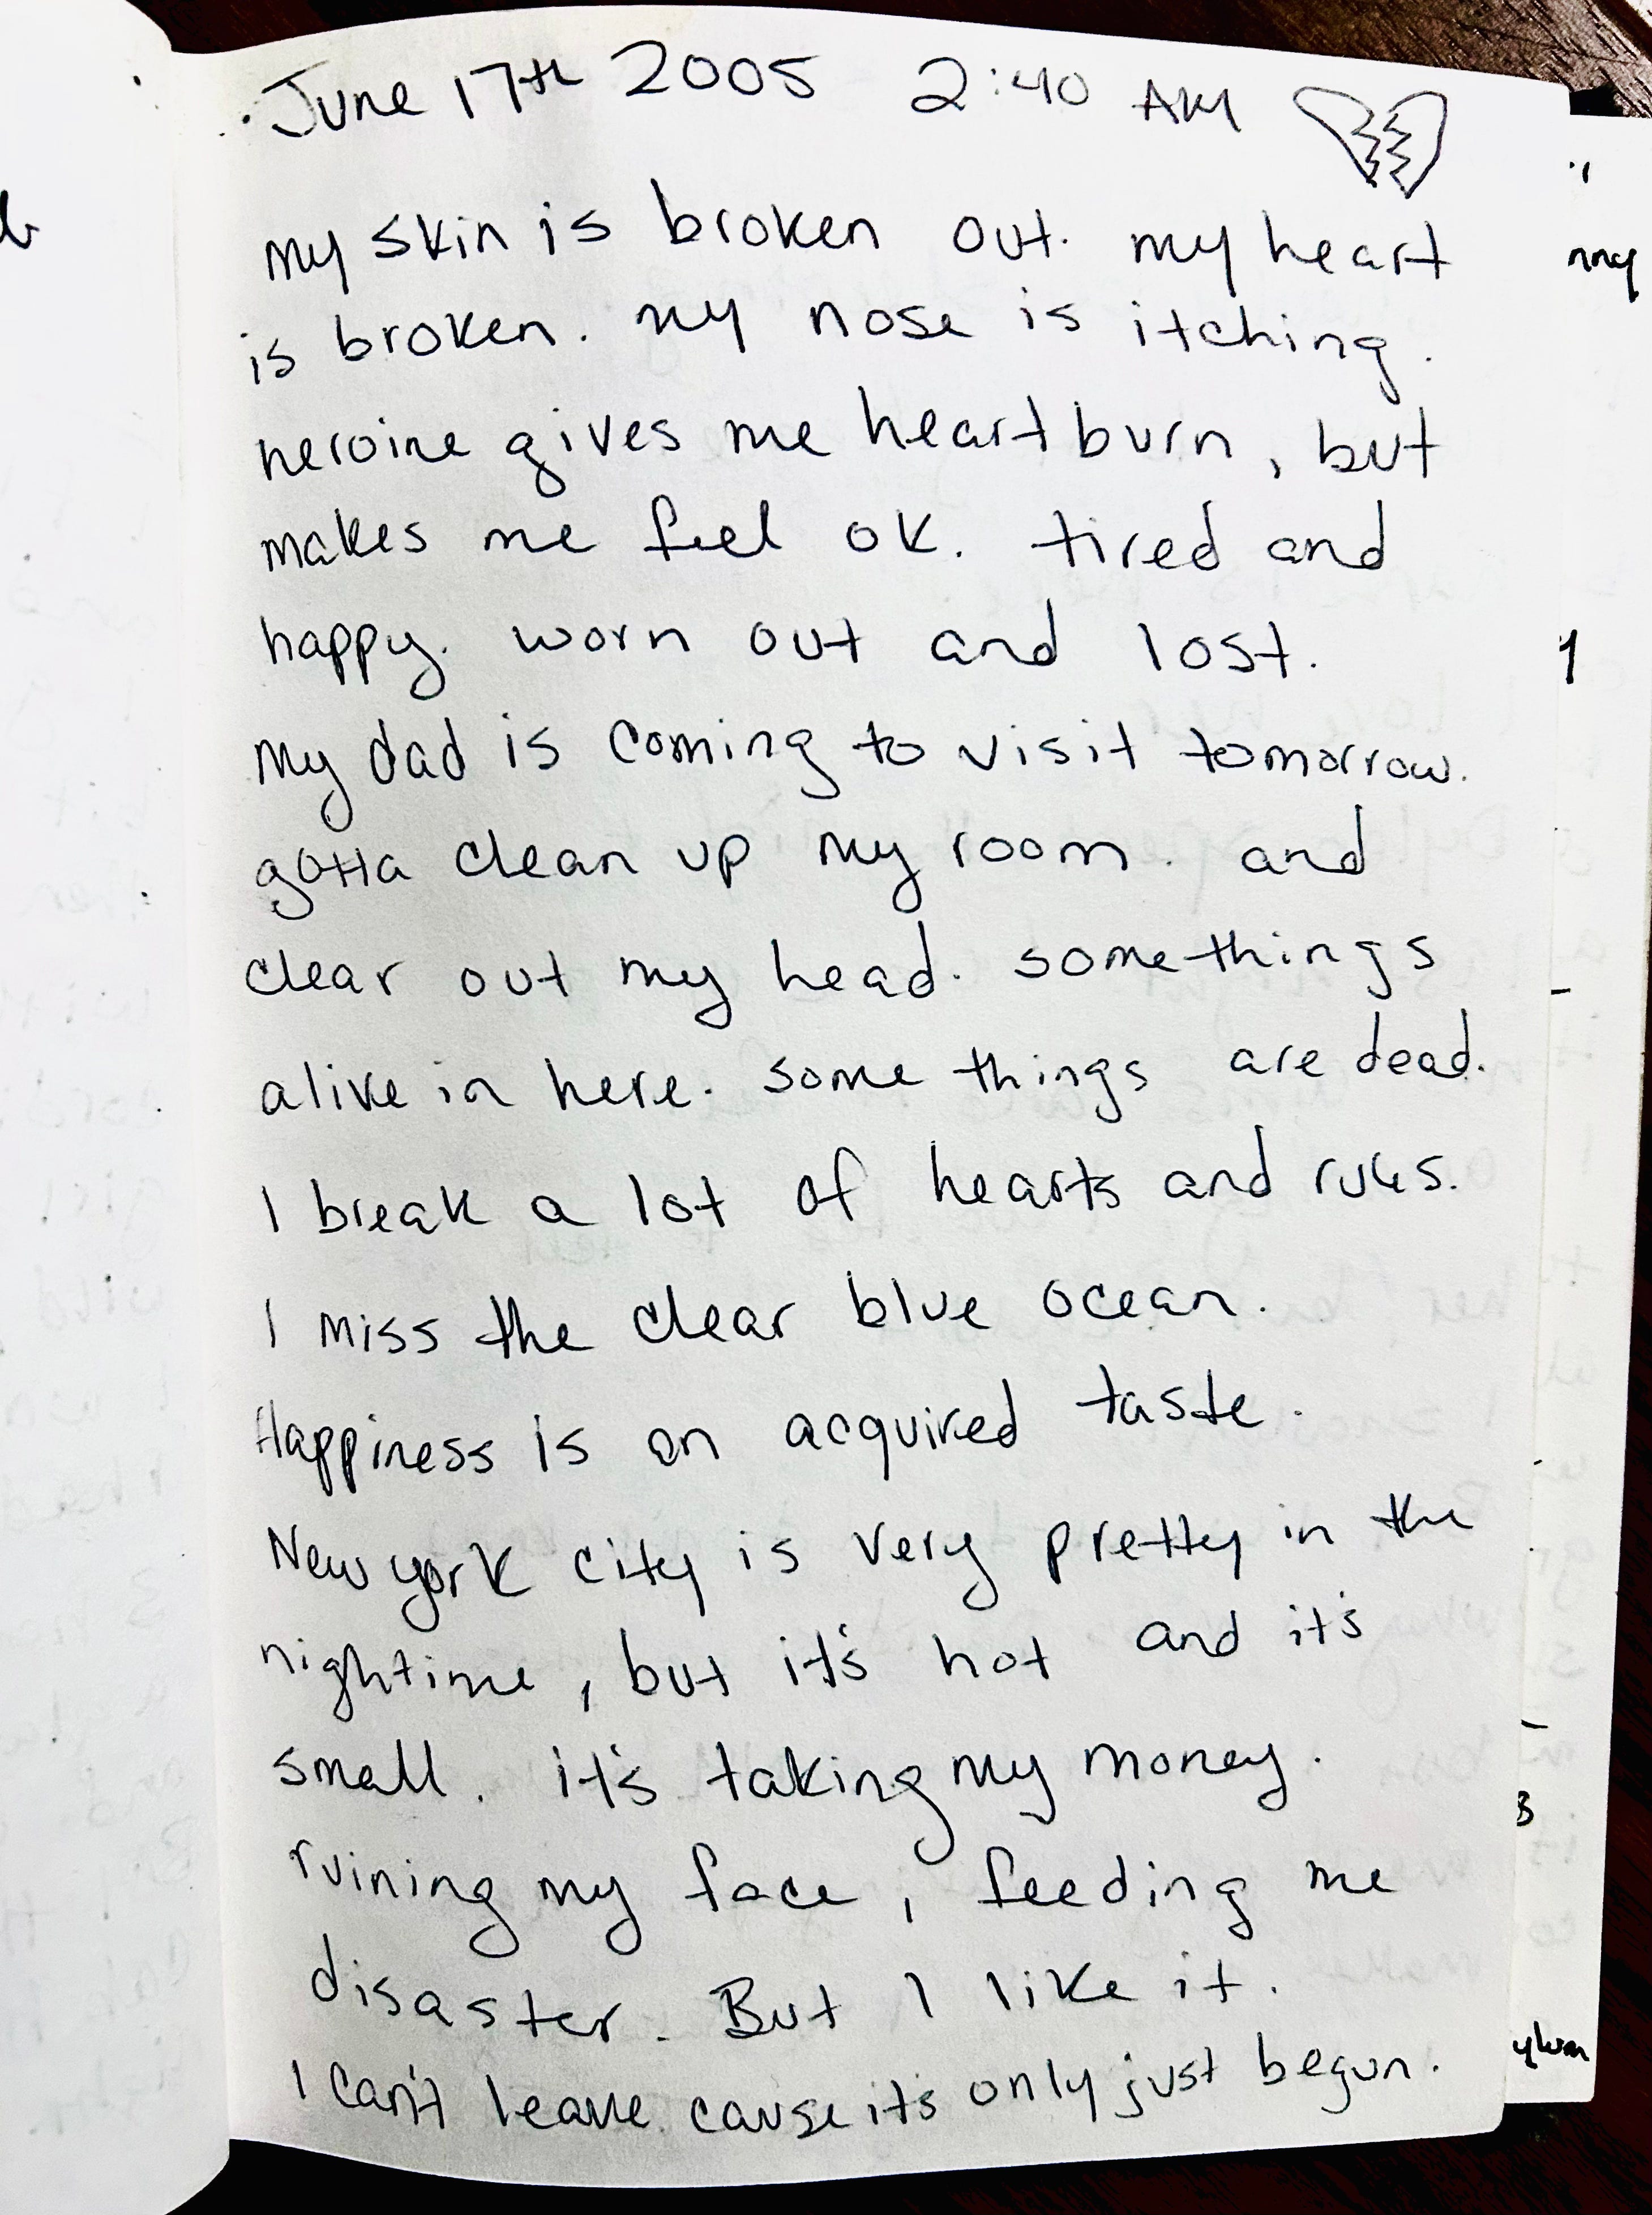 June 17th 2005 2:40 AM
my skin is broken out. my heart
is broken. my nose is itching.
heroine gives me heartburn, but
makes me feel ok. tired and
happy. worn out and lost.
my dad is coming to visit tomorrow.
gotta clean up my room. and
clear out my head. somethings
alive in here. some things are dead.
I break a lot of hearts and rules.
I miss the clear blue ocean.
Happiness is an acquired taste.
New york city is very pretty in the
nightime, but it's hot and it's
small. it's taking my money.
ruining my face, feeding me
disaster. But I like it.
I can't leave cause it's only just begun.